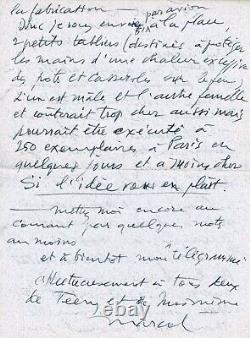 la fabrication — par avion
Donc je vous envoie à la place
2 petits tabliers (destinés à protéger
les mains d'une chaleur excessive
des pots et casseroles sur le feu
L'un est mâle et l'autre femelle
et couterait trop cher aussi mais
pourrait être exécuté à
250 exemplaires à Paris en
quelques jours et à moins cher
Si l'idée vous en plait.
— mettez moi encore au
courant par quelques mots
au moins
et à bientot mon télégramme
affectueusement à tous deux
de Teeny et de
Marcel